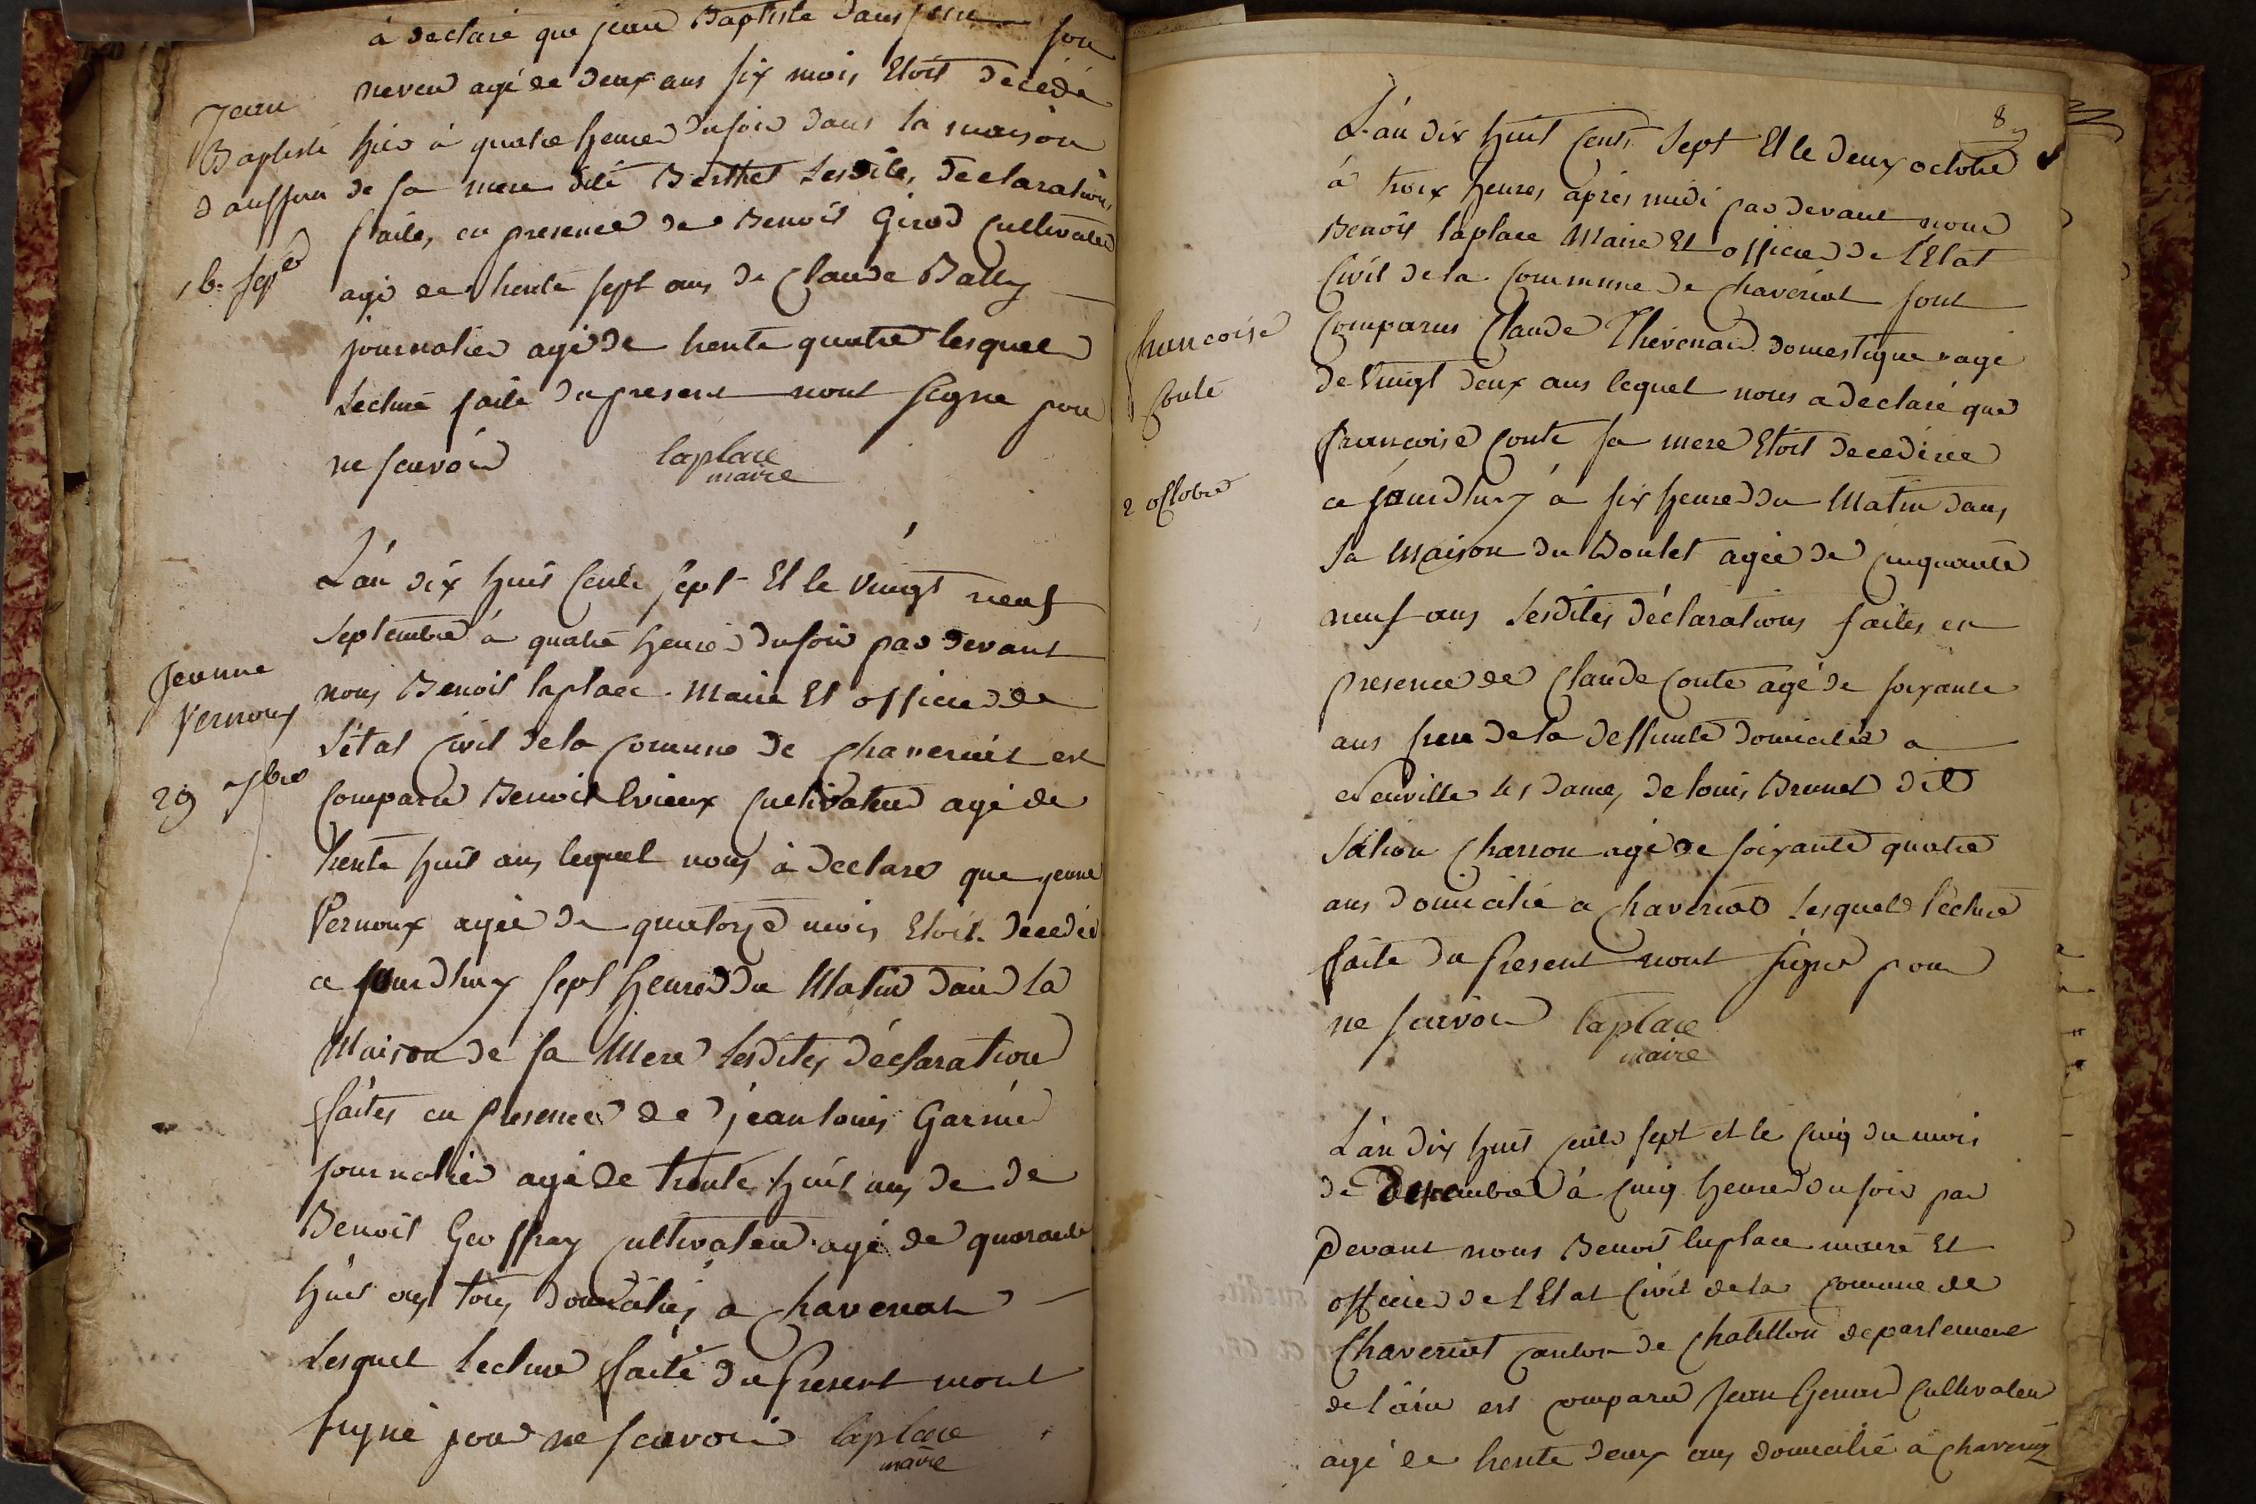 à declaré que jean Baptiste Dauffere son
neveu agé de deux ans six mois Etoit decedé
Jean
Baptiste
Dauffere
16 sepre
hier à quatre heures du soir dans la maison
de sa mere dité Berthet Lesdites declarations
faites en presence de Benoit Girod Cultivateur
agé de trente sept ans de Claude Bally
journalier agé de trente quatre lesquel
Lecture faite du present nont signe pour
ne scavoir
laplace
maire
L'an dix huit Cent sept Et le vingt neuf
Septembre à quatre heures du soir par devant
Jeanne
Vernoux
29 7bre
nous Benoit laplace Maire Et officier de
L'état Civil de la Comune de Chaveriat est
Comparu Benoit Cultivateur agé de
trente huit ans lequel nous à declare que jeane
Vernoux agée de quatorze mois Etoit decedée
ce jourdhuy sept heures du Matin dans la
Maison de sa Mere Lesdites déclaration
faites en presence de jean louis Garnier
journalier agé de trente huit ans de de
Benoit Geoffray Cultivateur agé de quarante
huit ans tous domiciliés a Chaveriat
Lesquel Lecture faite du present nont
signé pour ne scavoir laplace
maire
8
L'an dix huit Cent Sept Et le deux octobre
à troix heures après midi par devant nous
Benoit laplace Maire Et officier de L'Etat
Civil de la Commune de Chaveriat sont
francoise
Conte
2 octobre
Comparus Claude Thévenard domestique agé
de Vingt deux ans lequel nous a declaré que
francoise Conte sa mere Etoit decedéee
ce jourdhuy à six heures du Matin dans
sa Maison du Boulet agée de Cinquante
neuf ans Lesdites déclarations faites en
presence de Claude Conte agé de soixante
ans frere de la deffunte domicilié a
Neuville les dames, de louis Brunet dit
Charron agé de soixante quatre
ans domicilié a Chaveriat Lesquels lecture
faite du present nont signé pour
ne scavoir laplace
maire
L'an dix huit cents sept et le Cinq du mois
de Decembre à Cinq heures du soir par
devant nous Benoit laplace maire Et
officier de L'Etat Civil de la Comune de
Chaveriat Canton de Chatillon departement
de l'ain est comparu Jean Cultivateur
agé de trente deux ans domicilié a Chaveriat